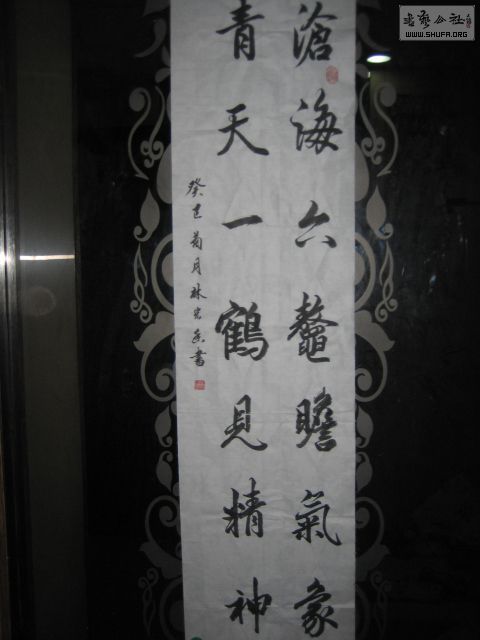 滄海六鼇瞻氣象
青天一鶴見精神
癸巳菊月林
書
書藝公社
WWW.SHUFA.ORG